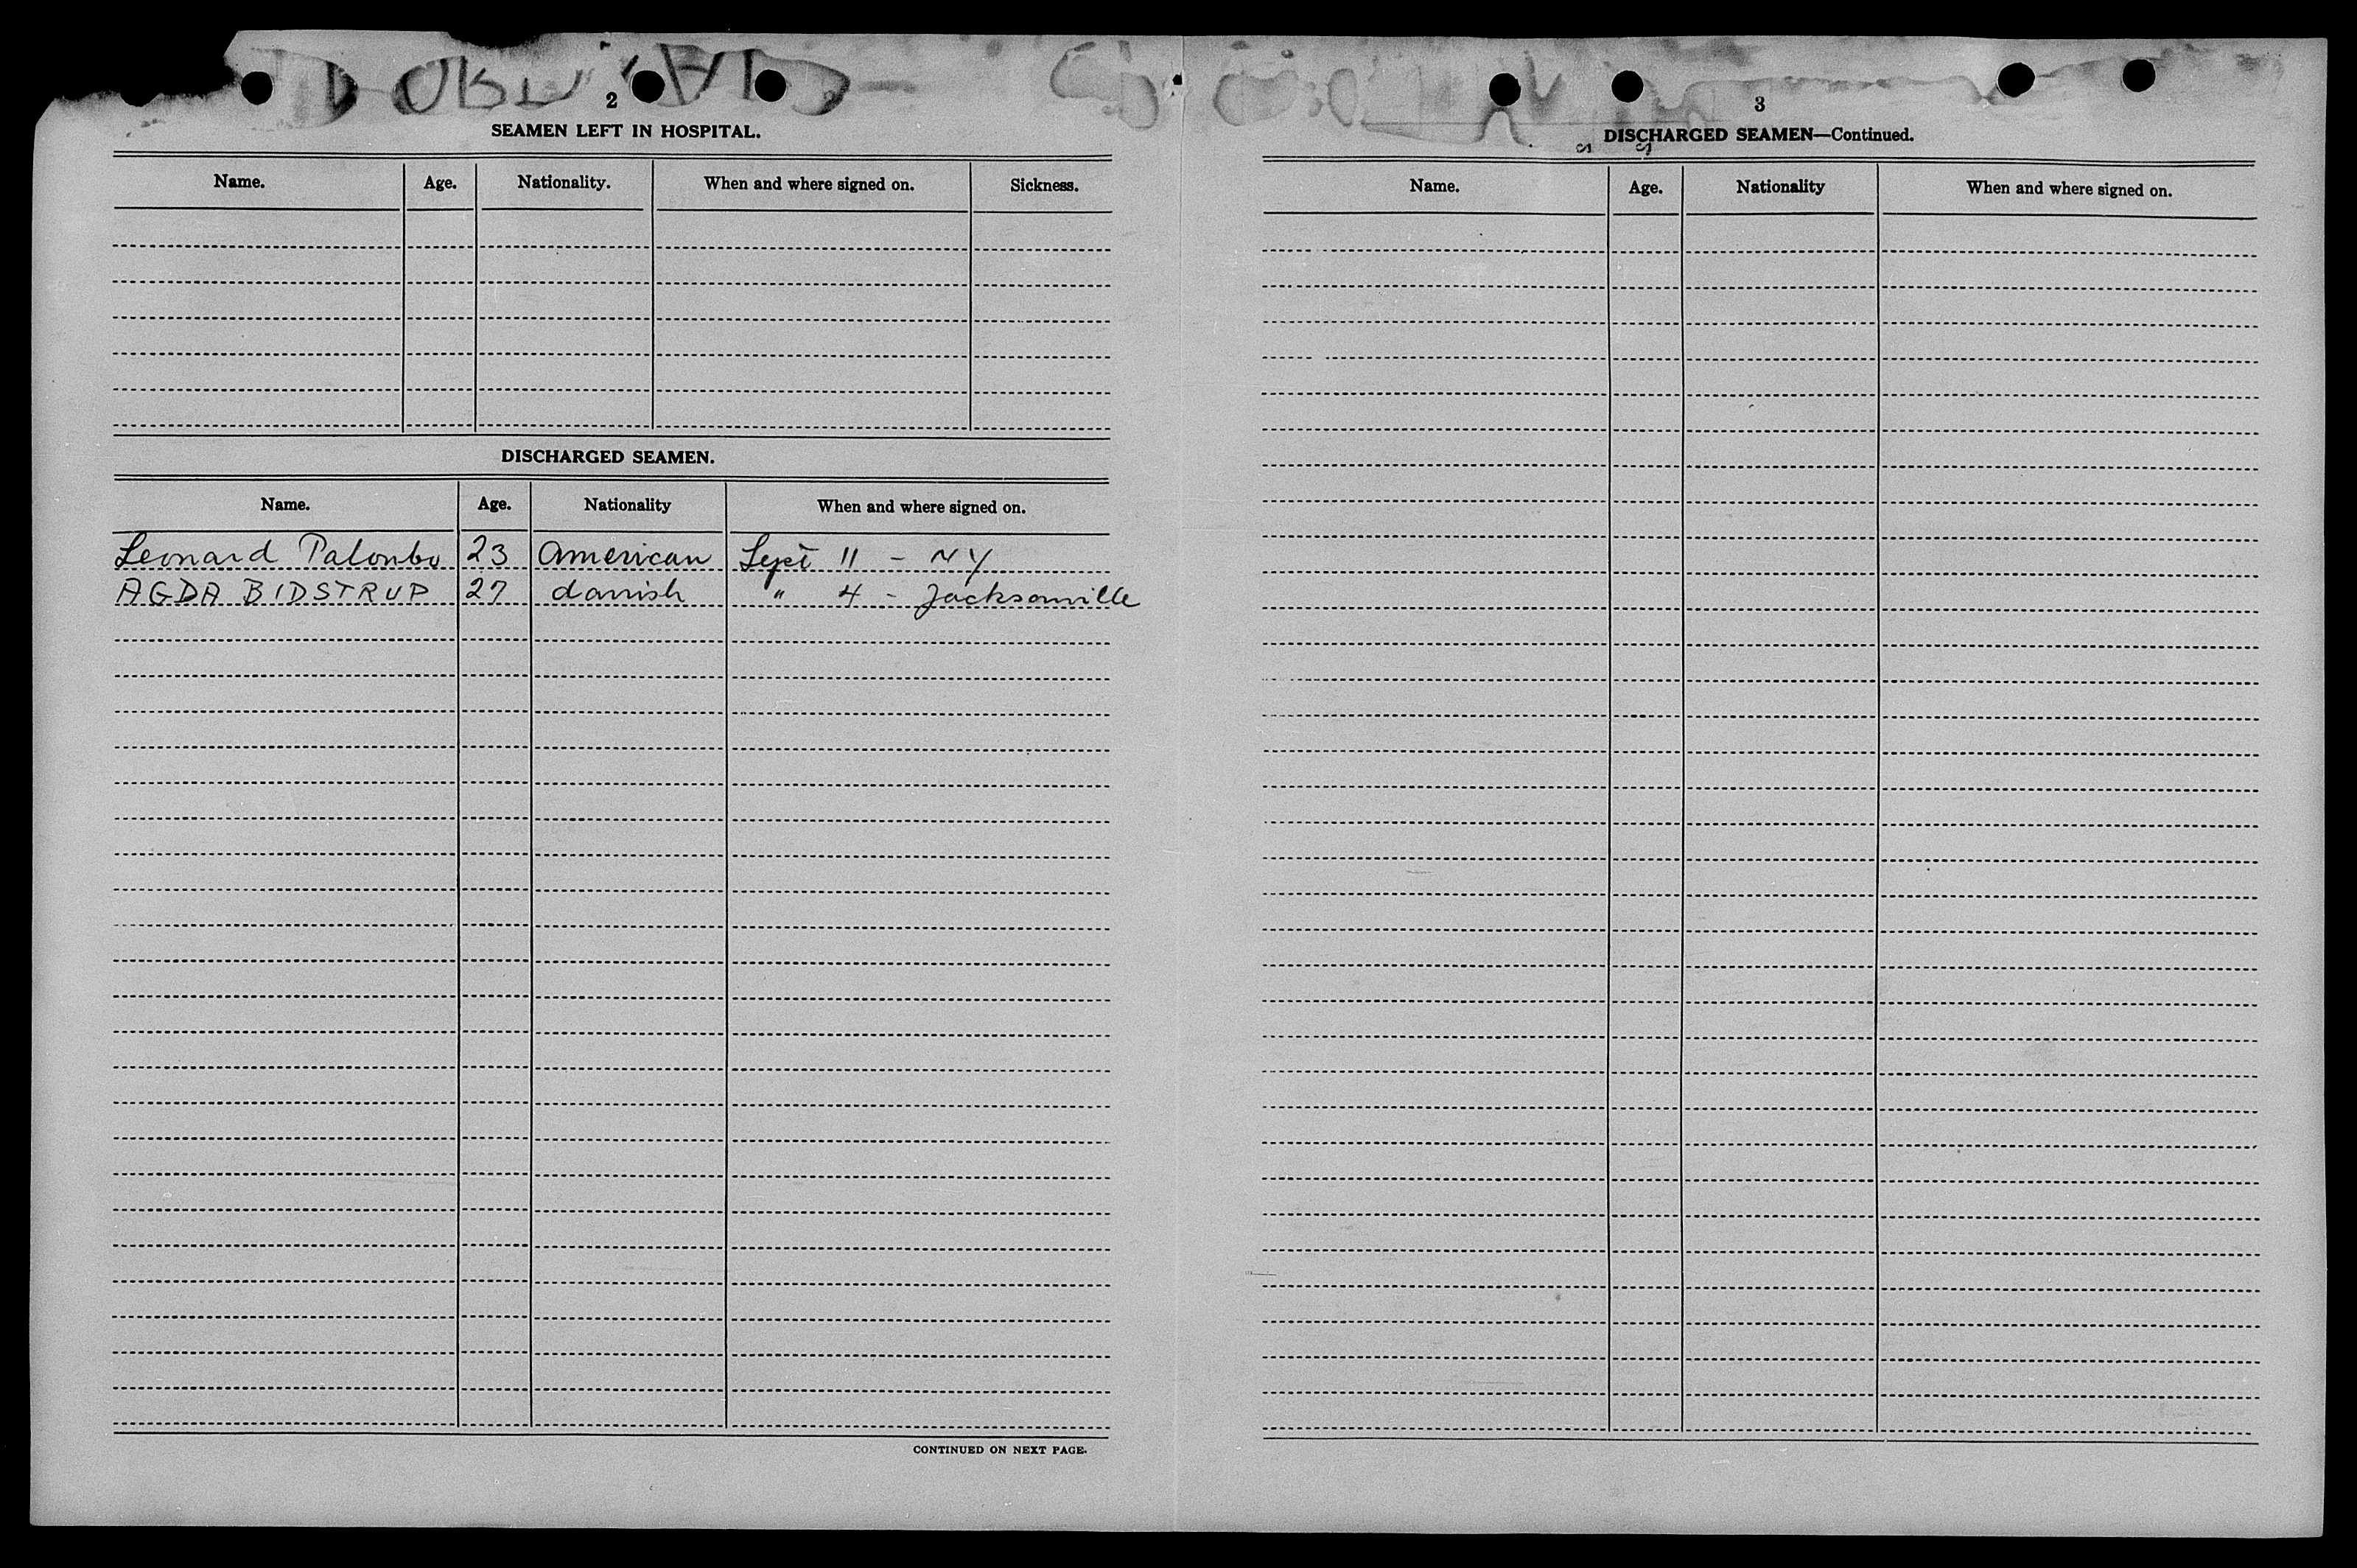 2
SEAMEN LEFT IN HOSPITAL.
Name. Age. Nationality. When and where signed on. Sickness.
DISCHARGED SEAMEN.
Name. Age. Nationality When and where signed on.
Leonard Palonbo 23 American Sept 11 - NY
AGDA BIDSTRUP 27 danish " 4 - Jacksonville
CONTINUED ON NEXT PAGE.
3
DISCHARGED SEAMEN—Continued.
Name. Age. Nationality When and where signed on.